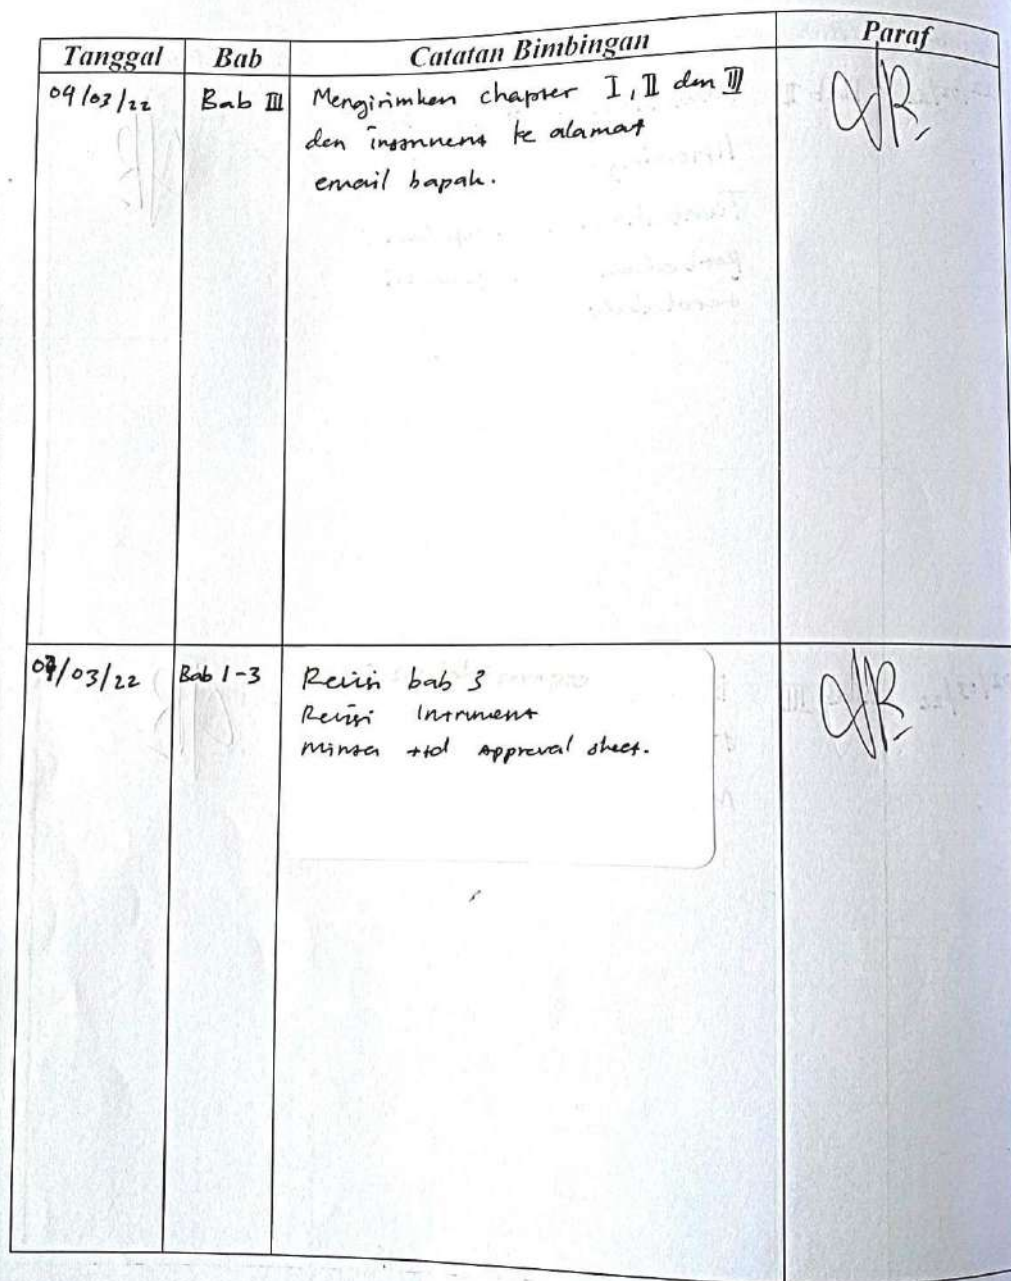 Tanggal Bab Catatan Bimbingan Paraf
04/03/22 Bab III Mengirimkan chapter I, II dan III
dan instrument ke alamat
email bapak.
07/03/22 Bab 1-3 Revisi bab 3
Revisi Intrument
Minta ttd approval sheet.